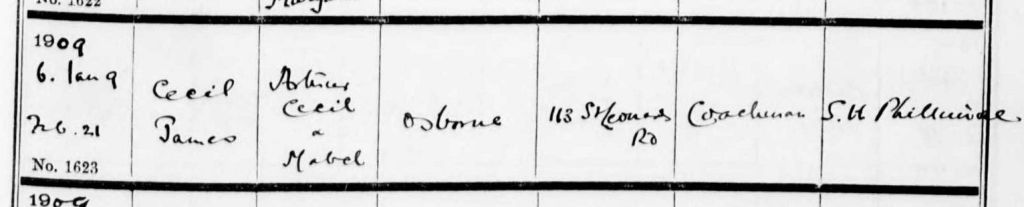 No. 1622
1909
6. Jan 9
Feb. 21
No. 1623
Cecil
James
Arthur
Cecil
&
Mabel
Osborne
113 St Leonards
Rd
Coachman
S. H Phillimore.
1909